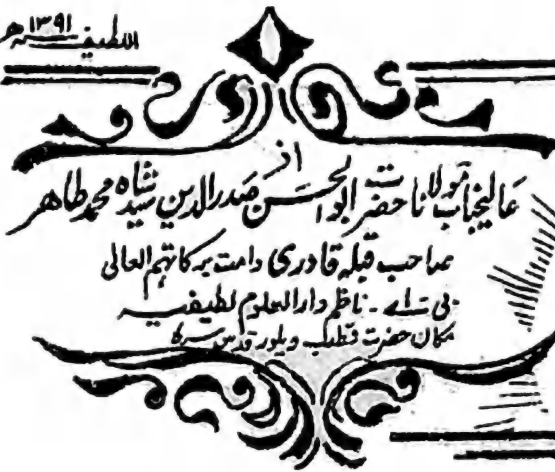 اللطیف ۱۳۹۱ھ
از
عالیجناب مولانا حضرت ابوالحسن صدرالدین سید شاہ محمد طاہر
صاحب قبلہ قادری دامت برکاتہم العالی
بی اے۔ ناظم دارالعلوم لطیفیہ
مکان حضرت قطب ویلور قدس سرہ